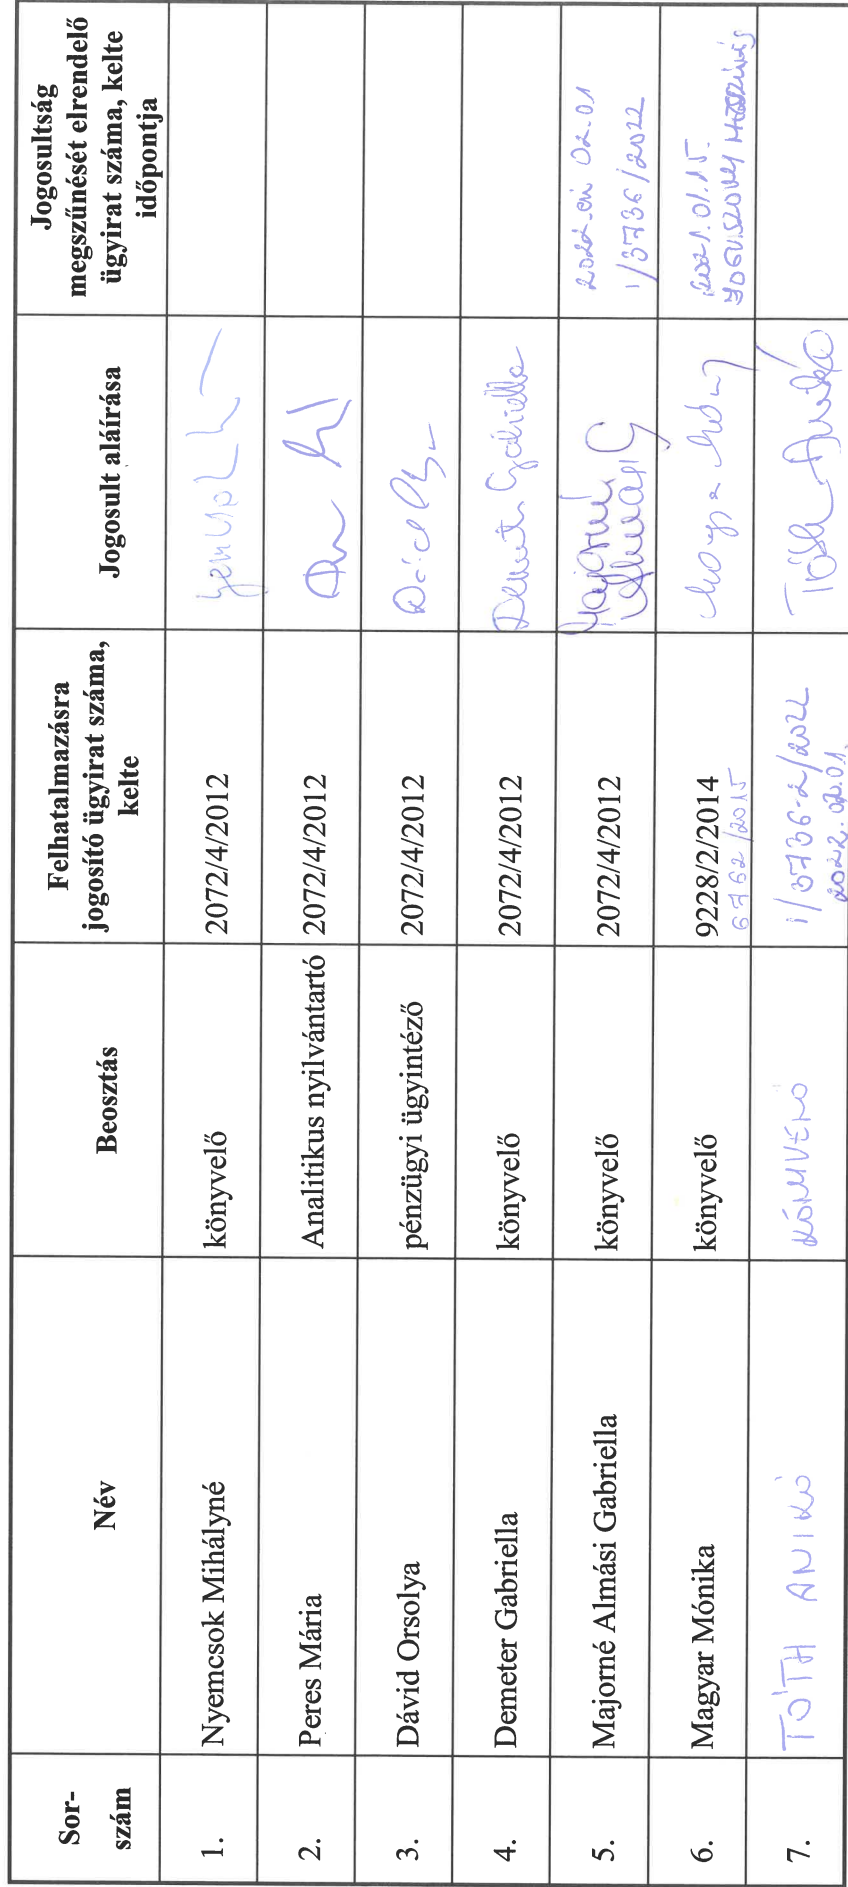 Sor-
szám
Név
Beosztás
Felhatalmazásra
jogosító ügyirat száma,
kelte
Jogosult aláírása
Jogosultság
megszűnését elrendelő
ügyirat száma, kelte
időpontja
1.
Nyemcsok Mihályné
könyvelő
2072/4/2012
2.
Peres Mária
Analitikus nyilvántartó
2072/4/2012
3.
Dávid Orsolya
pénzügyi ügyintéző
2072/4/2012
4.
Demeter Gabriella
könyvelő
2072/4/2012
Demeter Gabriella
5.
Majorné Almási Gabriella
könyvelő
2072/4/2012
Majorné
Almási G
2022.évi 02.01
1/3736/2022
6.
Magyar Mónika
könyvelő
9228/2/2014
6762/2015
Magyar Mónika
2021.01.15.
JOGVISZONY
7.
TÓTH ANIKÓ
KÖNYVELŐ
1/3736-2/2022
2022.02.01.
Tóth Anikó